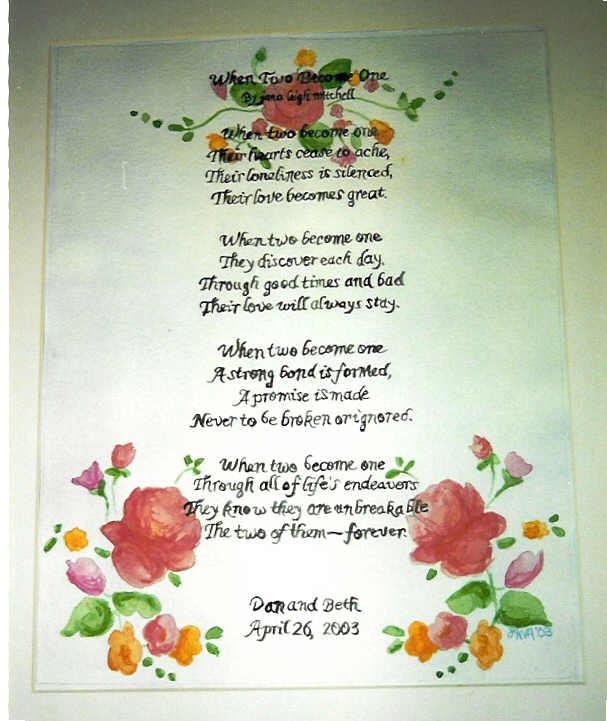 When Two Become One
By jana leigh mitchell
When two become one
Their hearts cease to ache,
Their loneliness is silenced,
Their love becomes great.
When two become one
They discover each day,
Through good times and bad
Their love will always stay.
When two become one
A strong bond is formed,
A promise is made
Never to be broken or ignored.
When two become one
Through all of life's endeavors
They know they are unbreakable
The two of them—forever.
Dan and Beth
April 26, 2003
'03